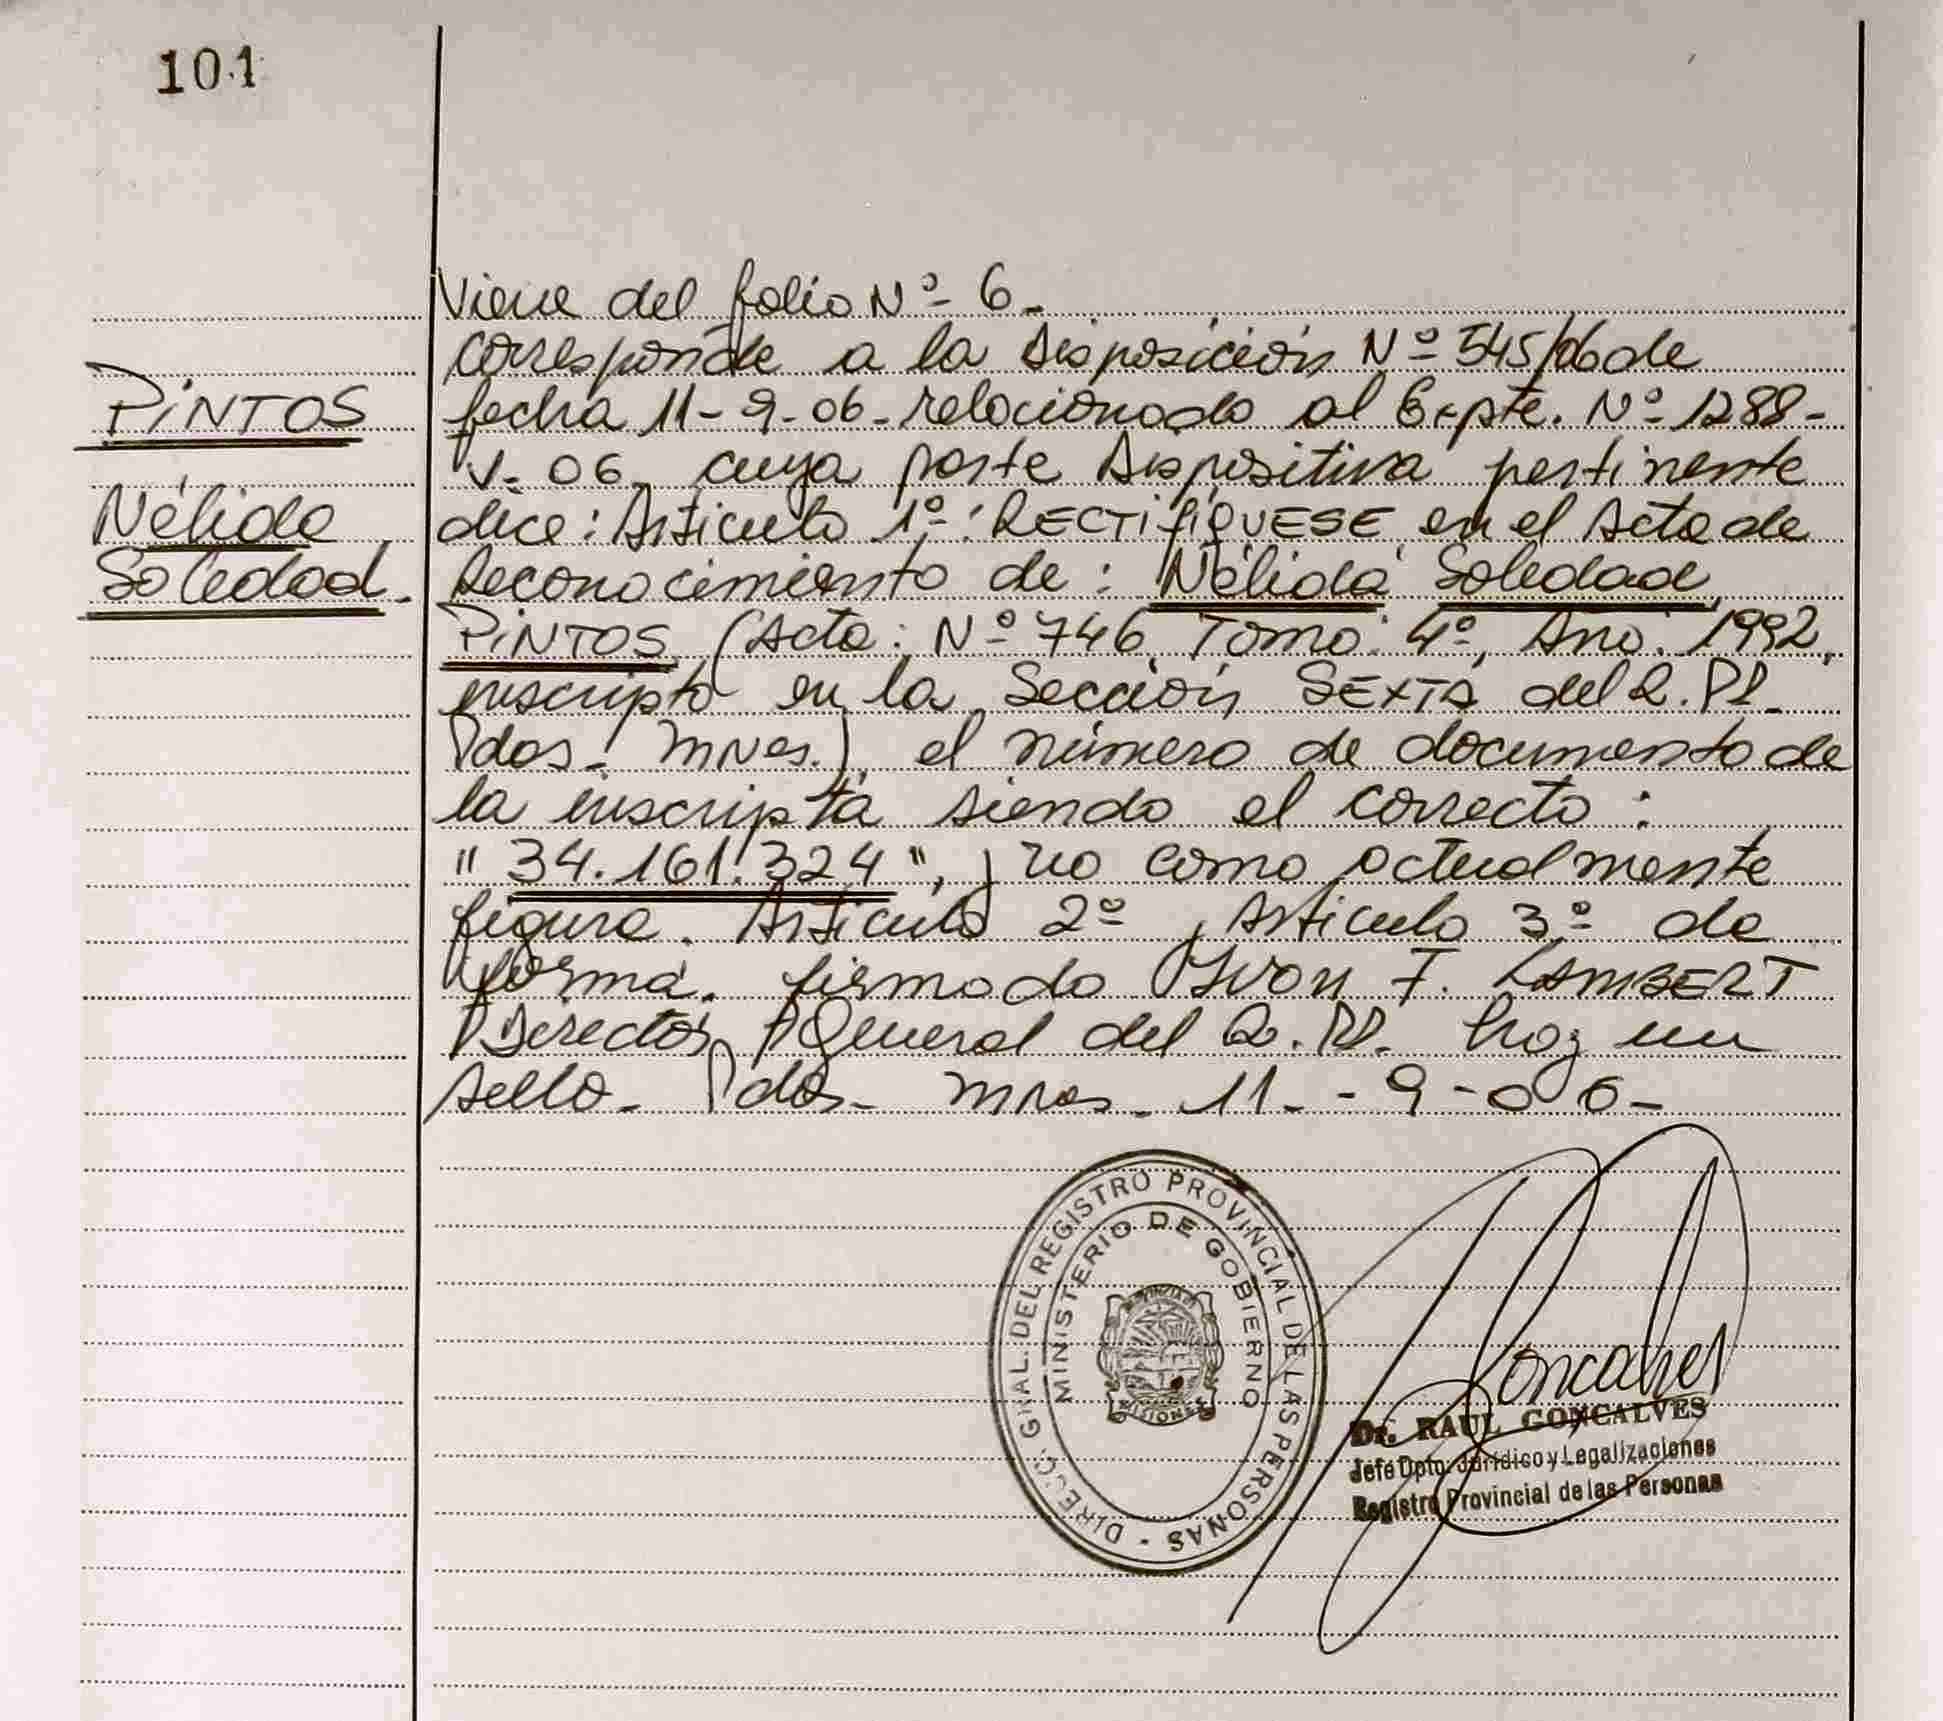 101
PINTOS
Nélida
Soledad.
Viene del folio Nº 6-
corresponde a la Disposición Nº 545/06 de
fecha 11-9-06- relacionado al Expte. Nº 1288-
V-06 cuya parte Dispositiva pertinente
dice: Artículo 1º: RECTIFIQUESE en el Acta de
Reconocimiento de: Nélida Soledad
PINTOS (Acta: Nº 746, Tomo: 4º, Año: 1992,
inscripta en la Sección SEXTA del R.PP.
Pdas- Mnes.) el número de documento de
la inscripta siendo el correcto:
"34.161.324", y no como actualmente
figura. Artículo 2º y Artículo 3º de
forma. firmado Yvon F. LAMBERT
Director General del R.PP. hay un
sello- Pdas- Mnes- 11- -9-06-
DIRECC. GRAL. DEL REGISTRO PROVINCIAL DE LAS PERSONAS -
MINISTERIO DE GOBIERNO
MISIONES
Goncalves
Dr. RAUL GONCALVES
Jefe Dpto. Jurídico y Legalizaciones
Registro Provincial de las Personas